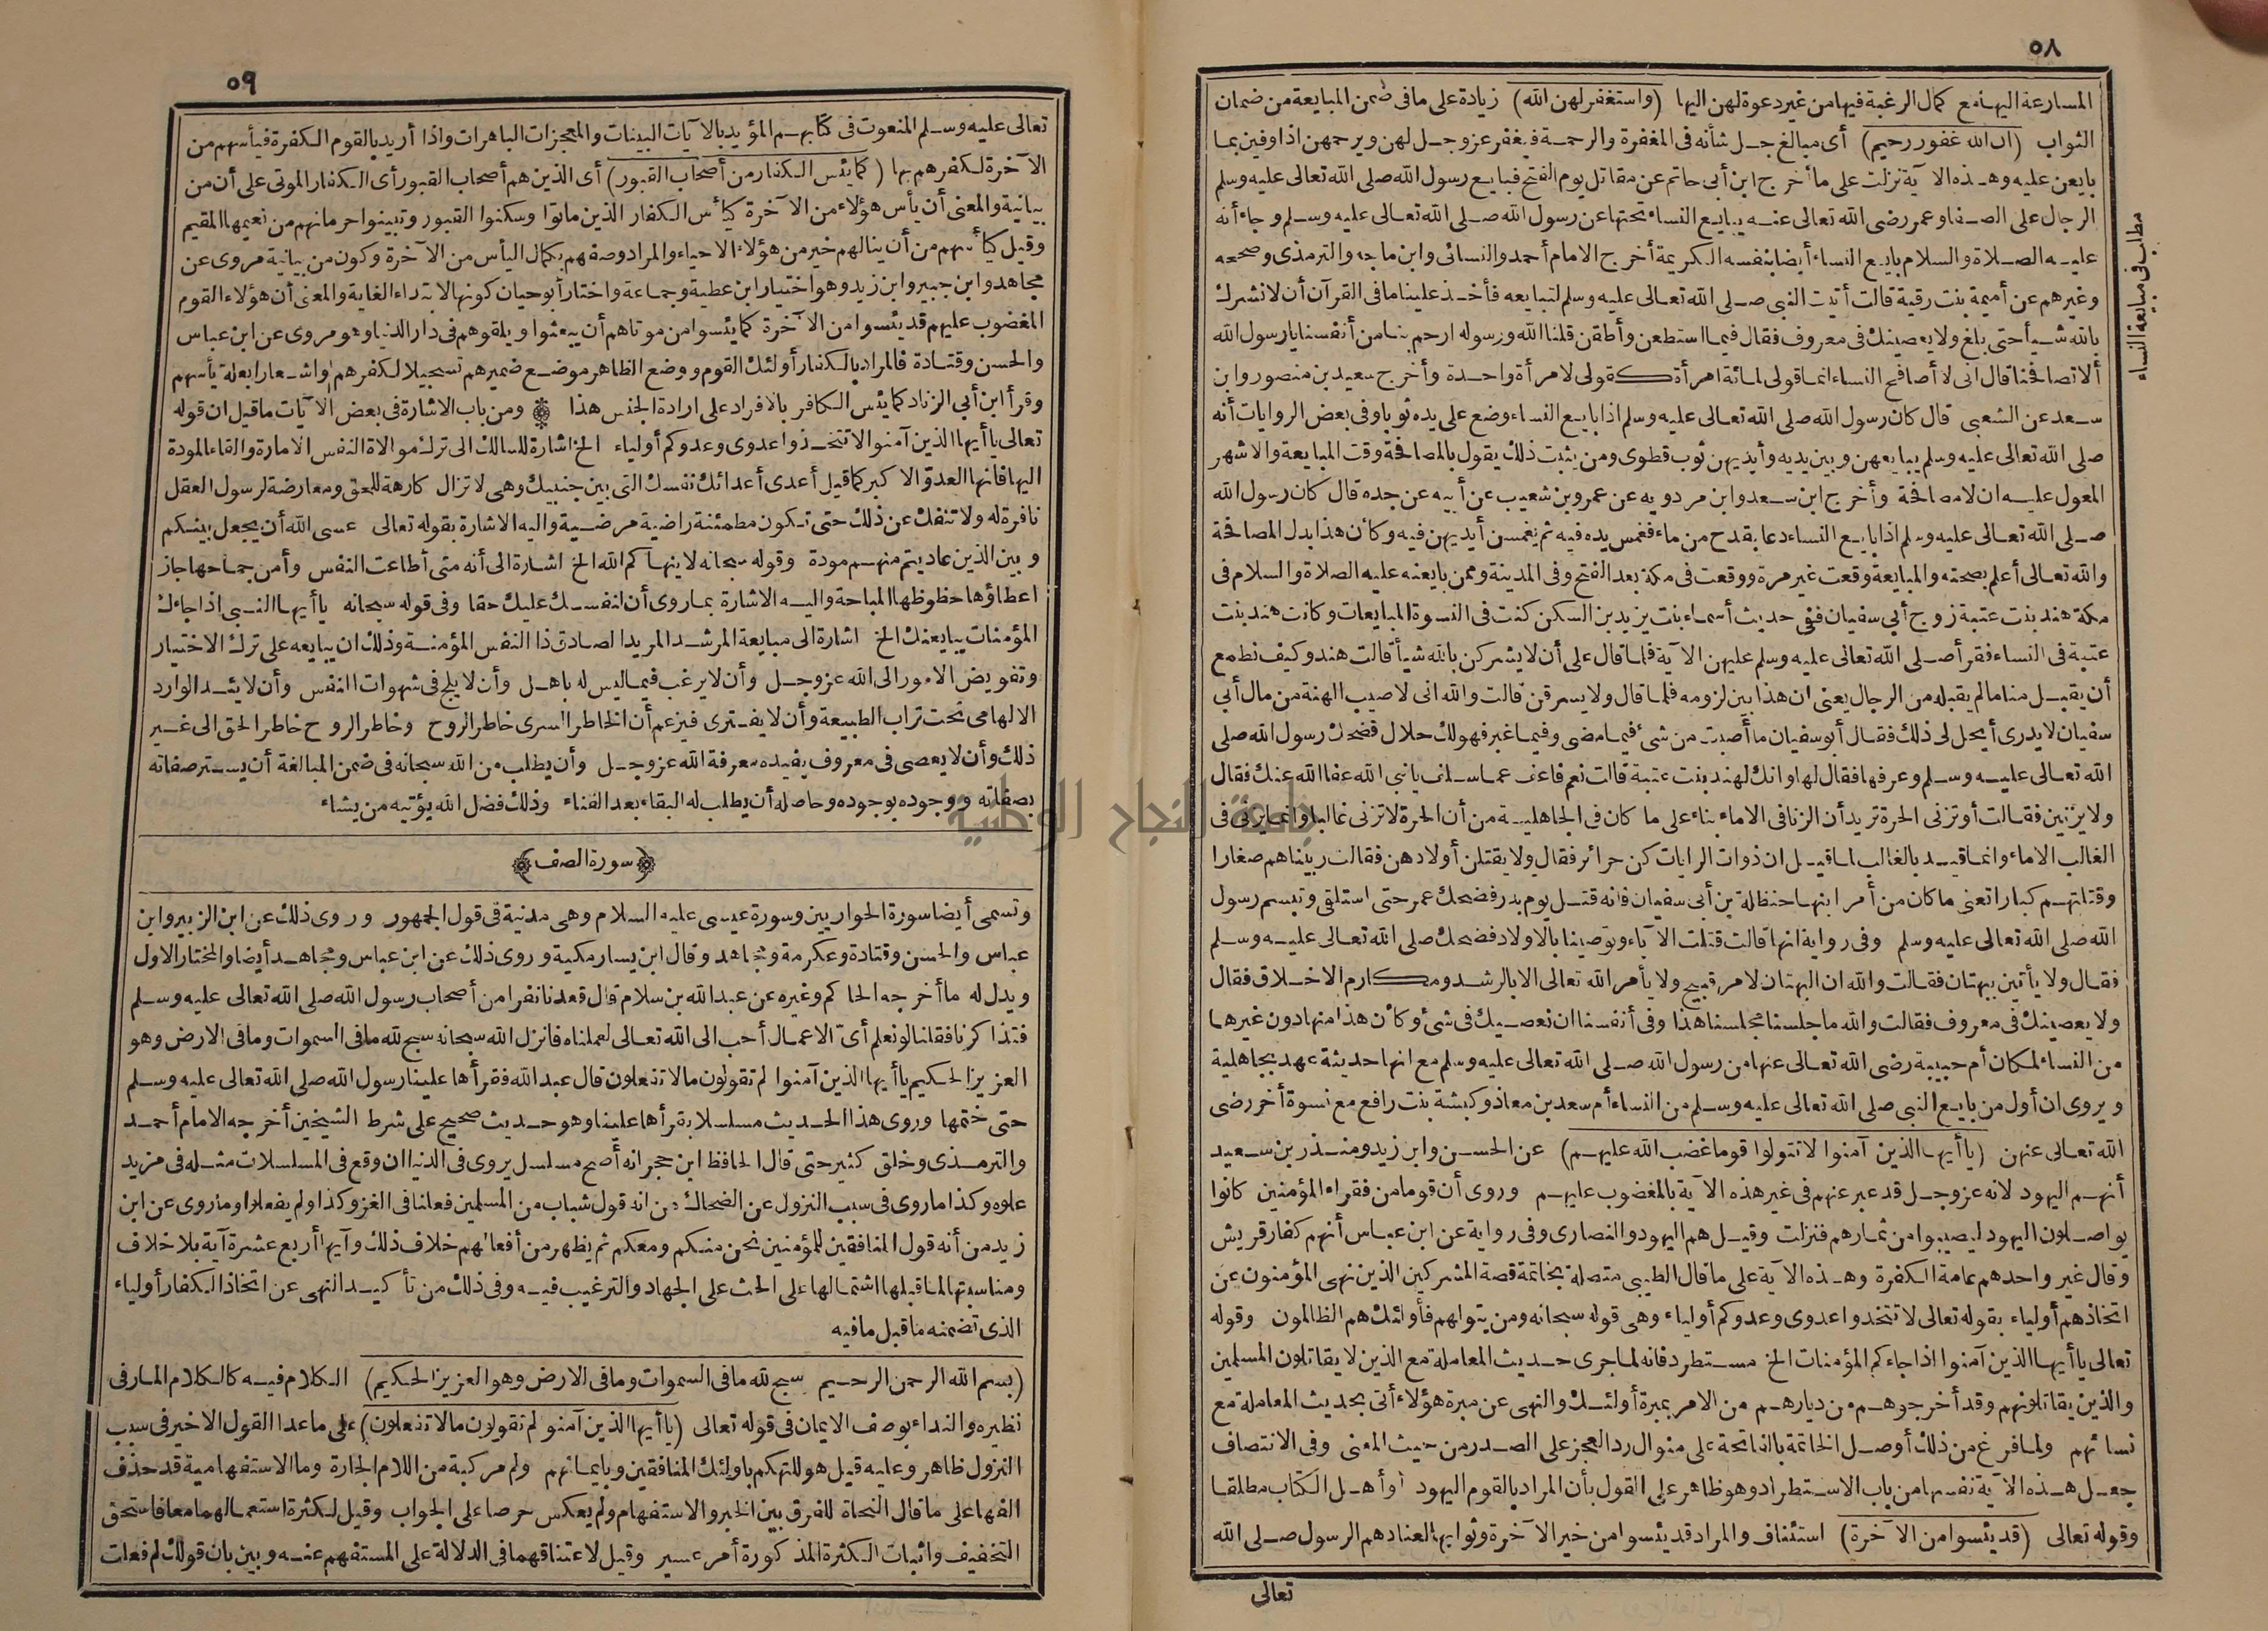 ٥٨
المسارعة اليها مع كمال الرغبة فيها من غير دعوة لهن اليها (واستغفر لهن الله) زيادة على ما فى ضمن المبايعة من ضمان
الثواب (ان الله غفور رحيم) أى مبالغ جل شأنه فى المغفرة والرحمة فيغفر عز وجل لهن ويرحمهن اذا وفين بما
بايعن عليه وهذه الآية نزلت على ما أخرج ابن أبى حاتم عن مقاتل يوم الفتح فبايع رسول الله صلى الله تعالى عليه وسلم
الرجال على الصفا وعمر رضى الله تعالى عنه يبايع النساء تحتها عن رسول الله صلى الله تعالى عليه وسلم وجاء أنه
عليه الصلاة والسلام بايع النساء أيضا بنفسه الكريمة أخرج الامام أحمد والنسائى وابن ماجه والترمذى وصححه
وغيرهم عن أميمة بنت رقيقة قالت أتيت النبى صلى الله تعالى عليه وسلم لنبايعه فأخذ علينا ما فى القرآن أن لا نشرك
بالله شيأ حتى بلغ ولا يعصينك فى معروف فقال فيما استطعن وأطقن قلنا الله ورسوله ارحم بنا من أنفسنا يا رسول الله
ألا تصافحنا قال انى لا أصافح النساء انما قولى لمائة امرأة كقولى لامرأة واحدة وأخرج سعيد بن منصور وابن
سعد عن الشعبى قال كان رسول الله صلى الله تعالى عليه وسلم اذا بايع النساء وضع على يده ثوبا وفى بعض الروايات أنه
صلى الله تعالى عليه وسلم يبايعهن وبين يديه وأيديهن ثوب قطوى ومن يثبت ذلك يقول بالمصافحة وقت المبايعة والاشهر
المعول عليه ان لا مصافحة وأخرج ابن سعد وابن مردويه عن عمرو بن شعيب عن أبيه عن جده قال كان رسول الله
صلى الله تعالى عليه وسلم اذا بايع النساء دعا بقدح من ماء فغمس يده فيه ثم يغمسن أيديهن فيه وكأن هذا بدل المصافحة
والله تعالى أعلم بصحته والمبايعة وقعت غير مرة ووقعت فى مكة بعد الفتح وفى المدينة وممن بايعنه عليه الصلاة والسلام فى
مكة هند بنت عتبة زوج أبى سفيان ففى حديث أسماء بنت يزيد بن السكن كنت فى النسوة المبايعات وكانت هند بنت
عتبة فى النساء فقرأ صلى الله تعالى عليه وسلم عليهن الآية فلما قال على أن لا يشركن بالله شيأ قالت هند وكيف نطمع
أن يقبل منا ما لم يقبله من الرجال يعنى ان هذا بين لزومه فلما قال ولا يسرقن قالت والله انى لا صيب الهنة من مال أبى
سفيان لا يدرى أيحل لى ذلك فقال أبو سفيان ما أصبت من شئ فيما مضى وفيما غبر فهو لك حلال فضحك رسول الله صلى
الله تعالى عليه وسلم وعرفها فقال لها وانك لهند بنت عتبة قالت نعم فاعف عما سلف يا نبى الله عفا الله عنك فقال
ولا يزنين فقالت أو تزنى الحرة تريد أن الزنا فى الاماء بناء على ما كان فى الجاهلية من أن الحرة لا تزنى غالبا وانما يزنى فى
الغالب الاماء وانما قيد بالغالب لما قيل ان ذوات الرايات كن حرائر فقال ولا يقتلن أولادهن فقالت ربيناهم صغارا
وقتلتهم كبارا تعنى ما كان من أمر ابنها حنظلة بن أبى سفيان فانه قتل يوم بدر فضحك عمر حتى استلقى وتبسم رسول
الله صلى الله تعالى عليه وسلم وفى رواية انها قالت قتلت الآباء وتوصينا بالاولاد فضحك صلى الله تعالى عليه وسلم
فقال ولا يأتين ببهتان فقالت والله ان البهتان لامر قبيح ولا يأمر الله تعالى الا بالرشد ومكارم الاخلاق فقال
ولا يعصينك فى معروف فقالت والله ما جلسنا مجلسنا هذا وفى أنفسنا ان نعصيك فى شئ وكأن هذا منها دون غيرها
من النساء لمكان أم حبيبة رضى الله تعالى عنها من رسول الله صلى الله تعالى عليه وسلم مع انها حديثة عهد بجاهلية
ويروى ان أول من بايع النبى صلى الله تعالى عليه وسلم من النساء أم سعد بن معاذ وكبشة بنت رافع مع نسوة أخر رضى
الله تعالى عنهن (يا أيها الذين آمنوا لا تتولوا قوما غضب الله عليهم) عن الحسن وابن زيد ومنذر بن سعيد
أنهم اليهود لانه عز وجل قد عبر عنهم فى غير هذه الآية بالمغضوب عليهم وروى أن قوما من فقراء المؤمنين كانوا
يواصلون اليهود ليصيبوا من ثمارهم فنزلت وقيل هم اليهود والنصارى وفى رواية عن ابن عباس أنهم كفار قريش
وقال غير واحد هم عامة الكفرة وهذه الآية على ما قال الطيبى متصلة بخاتمة قصة المشركين الذين نهى المؤمنون عن
اتخاذهم أولياء بقوله تعالى لا تتخذوا عدوى وعدوكم أولياء وهى قوله سبحانه ومن يتولهم فأولئك هم الظالمون وقوله
تعالى يا أيها الذين آمنوا اذا جاءكم المؤمنات الخ مستطرد فانه لما جرى حديث المعاملة مع الذين لا يقاتلون المسلمين
والذين يقاتلونهم وقد أخرجوهم من ديارهم من الامر بمبرة أولئك والنهى عن مبرة هؤلاء أتى بحديث المعاملة مع
نسائهم ولما فرغ من ذلك أوصل الخاتمة بالفاتحة على منوال رد العجز على الصدر من حيث المعنى وفى الانتصاف
جعل هذه الآية نفسها من باب الاستطراد وهو ظاهر على القول بأن المراد بالقوم اليهود أو أهل الكتاب مطلقا
وقوله تعالى (قد يئسوا من الآخرة) استئناف والمراد قد يئسوا من خير الآخرة وثوابها لعنادهم الرسول صلى الله
تعالى
مطلب فى مبايعة النساء
٥٩
تعالى عليه وسلم المنعوت فى كتابهم المؤيد بالآيات البينات والمعجزات الباهرات واذا أريد بالقوم الكفرة فيأسهم من
الآخرة لكفرهم بها (كما يئس الكفار من أصحاب القبور) أى الذين هم أصحاب القبور أى الكفار الموتى على أن من
بيانية والمعنى أن يأس هؤلاء من الآخرة كيأس الكفار الذين ماتوا وسكنوا القبور وتبينوا حرمانهم من نعيمها المقيم
وقيل كيأسهم من أن ينالهم خير من هؤلاء الاحياء والمراد وصفهم بكمال اليأس من الآخرة وكون من بيانية مروى عن
مجاهد وابن جبير وابن زيد وهو اختيار ابن عطية وجماعة واختار أبو حيان كونها لابتداء الغاية والمعنى أن هؤلاء القوم
المغضوب عليهم قد يئسوا من الآخرة كما يئسوا من موتاهم أن يبعثوا ويلقوهم فى دار الدنيا وهو مروى عن ابن عباس
والحسن وقتادة فالمراد بالكفار أولئك القوم ووضع الظاهر موضع ضميرهم تسجيلا لكفرهم واشعارا بعلة يأسهم
وقرأ ابن أبى الزناد كما يئس الكافر بالافراد على ارادة الجنس هذا ۞ ومن باب الاشارة فى بعض الآيات ما قيل ان قوله
تعالى يا أيها الذين آمنوا لا تتخذوا عدوى وعدوكم أولياء الخ اشارة للسالك الى ترك موالاة النفس الامارة والقاء المودة
اليها فانها العدو الاكبر كما قيل أعدى أعدائك نفسك التى بين جنبيك وهى لا تزال كارهة للحق ومعارضة لرسول العقل
نافرة له ولا تنفك عن ذلك حتى تكون مطمئنة راضية مرضية واليه الاشارة بقوله تعالى عسى الله أن يجعل بينكم
وبين الذين عاديتم منهم مودة وقوله سبحانه لا ينهاكم الله الخ اشارة الى أنه متى أطاعت النفس وأمن جماحها جاز
اعطاؤها حظوظها المباحة واليه الاشارة بما روى أن لنفسك عليك حقا وفى قوله سبحانه يا أيها النبى اذا جاءك
المؤمنات يبايعنك الخ اشارة الى مبايعة المرشد المريد الصادق ذا النفس المؤمنة وذلك ان يبايعه على ترك الاختيار
وتفويض الامور الى الله عز وجل وأن لا يرغب فيما ليس له باهل وأن لا يلج فى شهوات النفس وأن لا يئد الوارد
الالهامى تحت تراب الطبيعة وأن لا يفترى فيزعم أن الخاطر السرى خاطر الروح وخاطر الروح خاطر الحق الى غير
ذلك وأن لا يعصى فى معروف يفيده معرفة الله عز وجل وأن يطلب من الله سبحانه فى ضمن المبالغة أن يستر صفاته
بصفاته ووجوده بوجوده وحاصله أن يطلب له البقاء بعد الفناء وذلك فضل الله يؤتيه من يشاء
﴿سورة الصف﴾
وتسمى أيضا سورة الحواريين وسورة عيسى عليه السلام وهى مدنية فى قول الجمهور وروى ذلك عن ابن الزبير وابن
عباس والحسن وقتادة وعكرمة ومجاهد وقال ابن يسار مكية وروى ذلك عن ابن عباس ومجاهد أيضا والمختار الاول
ويدل له ما أخرجه الحاكم وغيره عن عبد الله بن سلام قال قعدنا نفرا من أصحاب رسول الله صلى الله تعالى عليه وسلم
فتذاكرنا فقلنا لو نعلم أى الاعمال أحب الى الله تعالى لعملناه فانزل الله سبحانه سبح لله ما فى السموات وما فى الارض وهو
العزيز الحكيم يا أيها الذين آمنوا لم تقولون ما لا تفعلون قال عبد الله فقرأها علينا رسول الله صلى الله تعالى عليه وسلم
حتى ختمها وروى هذا الحديث مسلسلا بقرأها علينا وهو حديث صحيح على شرط الشيخين أخرجه الامام أحمد
والترمذى وخلق كثير حتى قال الحافظ ابن حجر انه أصح مسلسل يروى فى الدنيا ان وقع فى المسلسلات مثله فى مزيد
علوه وكذا ما روى فى سبب النزول عن الضحاك من انه قول شباب من المسلمين فعلنا فى الغزو كذا ولم يفعلوا وما روى عن ابن
زيد من أنه قول المنافقين للمؤمنين نحن منكم ومعكم ثم يظهر من أفعالهم خلاف ذلك وآيها أربع عشرة آية بلا خلاف
ومناسبتها لما قبلها اشتمالها على الحث على الجهاد والترغيب فيه وفى ذلك من تأكيد النهى عن اتخاذ الكفار أولياء
الذى تضمنه ما قبل ما فيه
(بسم الله الرحمن الرحيم سبح لله ما فى السموات وما فى الارض وهو العزيز الحكيم) الكلام فيه كالكلام المار فى
نظيره والنداء بوصف الايمان فى قوله تعالى (يا أيها الذين آمنوا لم تقولون ما لا تفعلون) على ما عدا القول الاخير فى سبب
النزول ظاهر وعليه قيل هو للتهكم باولئك المنافقين وبايمانهم ولم مركبة من اللام الجارة وما الاستفهامية قد حذف
الفها على ما قال النحاة للفرق بين الخبر والاستفهام ولم يعكس حرصا على الجواب وقيل لكثرة استعمالهما معا فاستحق
التخفيف واثبات الكثرة المذكورة أمر عسير وقيل لاعتناقهما فى الدلالة على المستفهم عنه وبين بان قولك لم فعلت
جامعة النجاح الوطنية